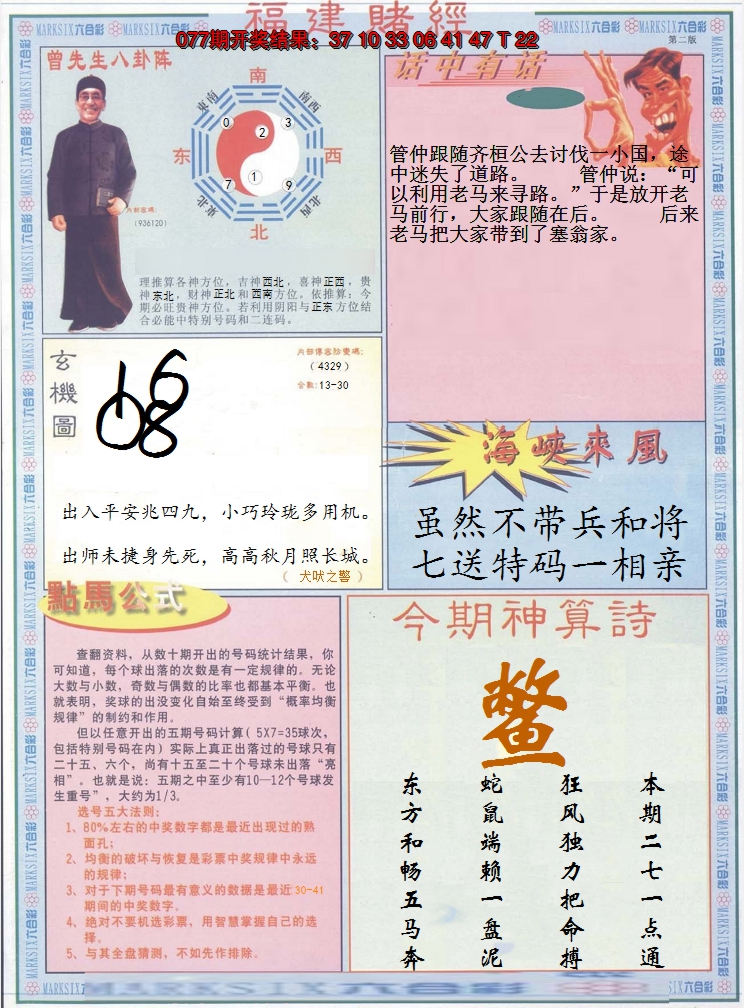 福建賭經
077期开奖结果：37 10 33 06 41 47 T 22
第二版
MARKSIX六合彩
曾先生八卦阵
南
东南
南西
东
西
東北
北西
北
0
2
3
7
1
9
（936120）
理推算各神方位，吉神西北，喜神正西，贵
神东北，财神正北和西南方位。依推算：今
期必旺贵神方位。若利用阴阳与正东方位结
合必能中特别号码和二连码。
话中有话
管仲跟随齐桓公去讨伐一小国，途
中迷失了道路。 管仲说：“可
以利用老马来寻路。”于是放开老
马前行，大家跟随在后。 后来
老马把大家带到了塞翁家。
玄機圖
内部傳密防變碼：
（4329）
合數：13-30
出入平安兆四九，小巧玲珑多用机。
出师未捷身先死，高高秋月照长城。
（ 犬吠之警 ）
海峽來風
虽然不带兵和将
七送特码一相亲
點馬公式
查翻资料，从数十期开出的号码统计结果，你
可知道，每个球出落的次数是有一定规律的。无论
大数与小数，奇数与偶数的比率也都基本平衡。也
就表明，奖球的出没变化自始至终受到“概率均衡
规律”的制约和作用。
但以任意开出的五期号码计算（5X7=35球次，
包括特别号码在内）实际上真正出落过的号球只有
二十五、六个，尚有十五至二十个号球未出落“亮
相”。也就是说：五期之中至少有10—12个号球发
生重号”，大约为1/3。
选号五大法则：
1、80%左右的中奖数字都是最近出现过的熟
面孔；
2、均衡的破坏与恢复是彩票中奖规律中永远
的规律；
3、对于下期号码最有意义的数据是最近30-41
期间的中奖数字。
4、绝对不要机选彩票，用智慧掌握自己的选
择。
5、与其全盘猜测，不如先作排除。
今期神算詩
鳖
本期二七一点通
狂风独力把命搏
蛇鼠端赖一盘泥
东方和畅五马奔
MARKSIX六合彩